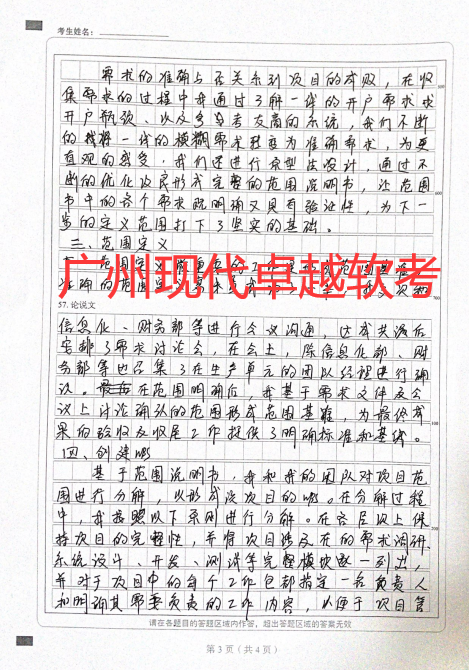 考生姓名：
要求的准确与否关系到项目的成败，在收
集需求的过程中我通过了解一线的开户需求或
开户瓶颈、以及参与者友商的系统，我们不断
的将一线的模糊需求转变为准确需求，为更
直观的感受，我们还进行原型法设计，通过不
断的优化改良形成完整的范围说明书，让范围
书中的每个需求既明确又具有验证性，为下一
步的定义范围打下了坚实的基础。
三、范围定义
广州现代卓越软考
准确的范围
57. 论说文
信息化、财务部等进行会议沟通，达成共识后
安排了需求讨论会，在会上，除信息化部、财
务部等也召集了在生产单元的团队经理进行确
认。在范围明确后，我基于需求文件及会
议上讨论确认的范围形成范围基准，为最终成
果的验收及收尾工作提供了明确标准和基线。
四、创建
基于范围说明书，我和我的团队对项目范
围进行分解，以形成该项目的。在分解过程
中，我按照以下原则进行分解。在容层次上保
持项目的完整性，并将项目涉及在的需求调研、
系统设计、开发、测试等完整模块一列出，
并对于项目中的每个工作包都指定一名负责人
和明确其需要负责的工作内容，以便于项目管
请在各题目的答题区域内作答，超出答题区域的答案无效
第3页（共4页）